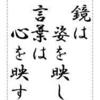 鏡は
姿を映し
言葉は
心を映す